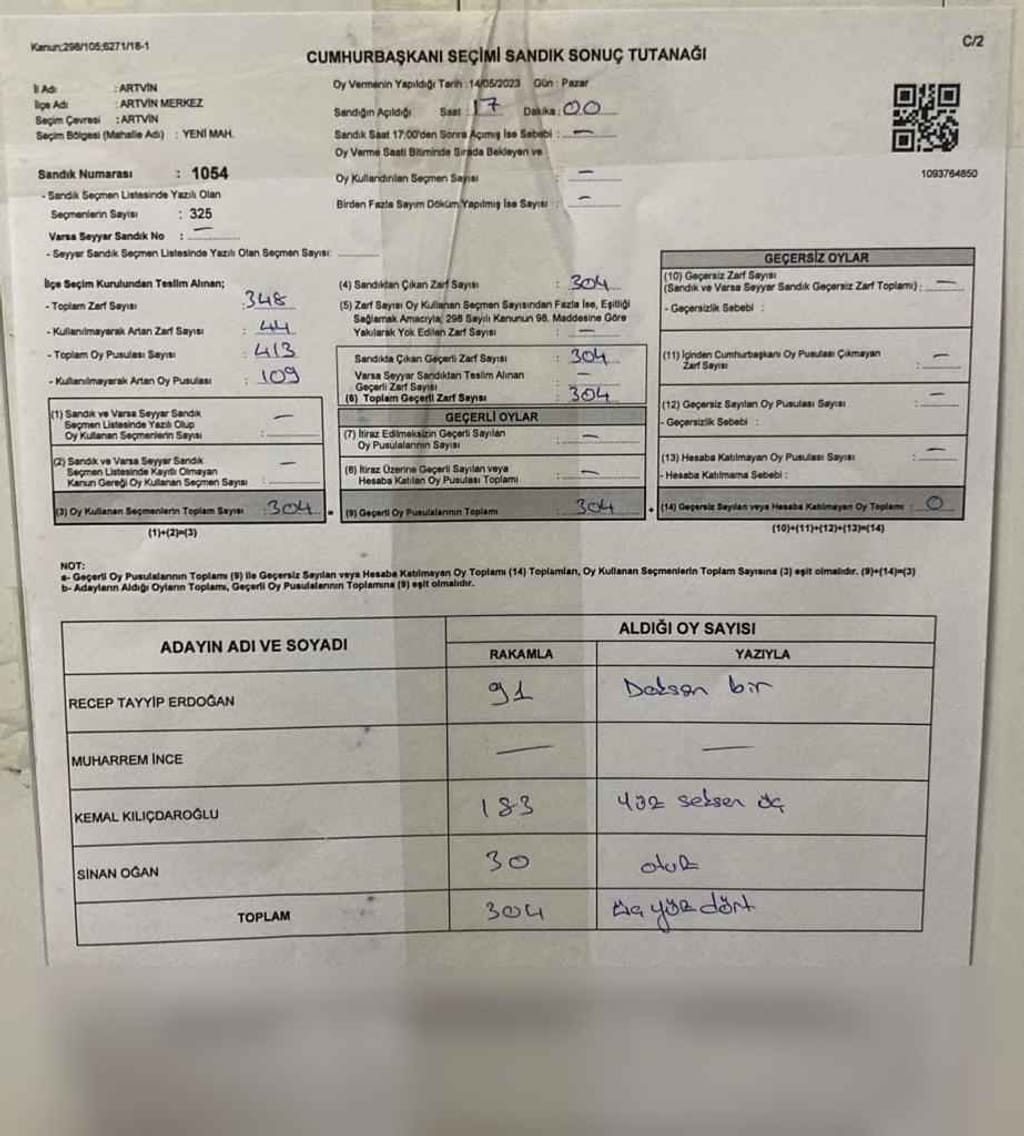 Kanun:298/105;6271/18-1
C/2
CUMHURBAŞKANI SEÇİMİ SANDIK SONUÇ TUTANAĞI
İl Adı : ARTVİN
İlçe Adı : ARTVİN MERKEZ
Seçim Çevresi : ARTVİN
Seçim Bölgesi (Mahalle Adı) : YENİ MAH.
Oy Vermenin Yapıldığı Tarih : 14/05/2023 Gün : Pazar
Sandığın Açıldığı Saat : 17 Dakika : 00
Sandık Saat 17:00'den Sonra Açımış İse Sebebi : —
Oy Verme Saati Bitiminde Sırada Bekleyen ve
Oy Kullandırılan Seçmen Sayısı : —
Birden Fazla Sayım Döküm Yapılmış İse Sayısı : —
1093764850
Sandık Numarası : 1054
- Sandık Seçmen Listesinde Yazılı Olan
Seçmenlerin Sayısı : 325
Varsa Seyyar Sandık No : —
- Seyyar Sandık Seçmen Listesinde Yazılı Olan Seçmen Sayısı:
İlçe Seçim Kurulundan Teslim Alınan;
- Toplam Zarf Sayısı : 348
- Kullanılmayarak Artan Zarf Sayısı : 44
- Toplam Oy Pusulası Sayısı : 413
- Kullanılmayarak Artan Oy Pusulası : 109
(1) Sandık ve Varsa Seyyar Sandık
Seçmen Listesinde Yazılı Olup
Oy Kullanan Seçmenlerin Sayısı : —
(2) Sandık ve Varsa Seyyar Sandık
Seçmen Listesinde Kayıtlı Olmayan
Kanun Gereği Oy Kullanan Seçmen Sayısı : —
(3) Oy Kullanan Seçmenlerin Toplam Sayısı : 304
(1)+(2)=(3)
(4) Sandıktan Çıkan Zarf Sayısı : 304
(5) Zarf Sayısı Oy Kullanan Seçmen Sayısından Fazla İse, Eşitliği
Sağlamak Amacıyla; 298 Sayılı Kanunun 98. Maddesine Göre
Yakılarak Yok Edilen Zarf Sayısı : —
Sandıkta Çıkan Geçerli Zarf Sayısı : 304
Varsa Seyyar Sandıktan Teslim Alınan
Geçerli Zarf Sayısı : —
(6) Toplam Geçerli Zarf Sayısı : 304
GEÇERLİ OYLAR
(7) İtiraz Edilmeksizin Geçerli Sayılan
Oy Pusulalarının Sayısı : —
(8) İtiraz Üzerine Geçerli Sayılan veya
Hesaba Katılan Oy Pusulası Toplamı : —
= (9) Geçerli Oy Pusulalarının Toplamı : 304
GEÇERSİZ OYLAR
(10) Geçersiz Zarf Sayısı
(Sandık ve Varsa Seyyar Sandık Geçersiz Zarf Toplamı) : —
- Geçersizlik Sebebi :
(11) İçinden Cumhurbaşkanı Oy Pusulası Çıkmayan
Zarf Sayısı : —
(12) Geçersiz Sayılan Oy Pusulası Sayısı : —
- Geçersizlik Sebebi :
(13) Hesaba Katılmayan Oy Pusulası Sayısı : —
- Hesaba Katılmama Sebebi :
+ (14) Geçersiz Sayılan veya Hesaba Katılmayan Oy Toplamı : 0
(10)+(11)+(12)+(13)=(14)
NOT:
a- Geçerli Oy Pusulalarının Toplamı (9) ile Geçersiz Sayılan veya Hesaba Katılmayan Oy Toplamı (14) Toplamları, Oy Kullanan Seçmenlerin Toplam Sayısına (3) eşit olmalıdır. (9)+(14)=(3)
b- Adayların Aldığı Oyların Toplamı, Geçerli Oy Pusulalarının Toplamına (9) eşit olmalıdır.
ADAYIN ADI VE SOYADI
ALDIĞI OY SAYISI
RAKAMLA YAZIYLA
RECEP TAYYİP ERDOĞAN 91 Doksan bir
MUHARREM İNCE — —
KEMAL KILIÇDAROĞLU 183 yüz seksen üç
SİNAN OĞAN 30 otuz
TOPLAM 304 üç yüz dört